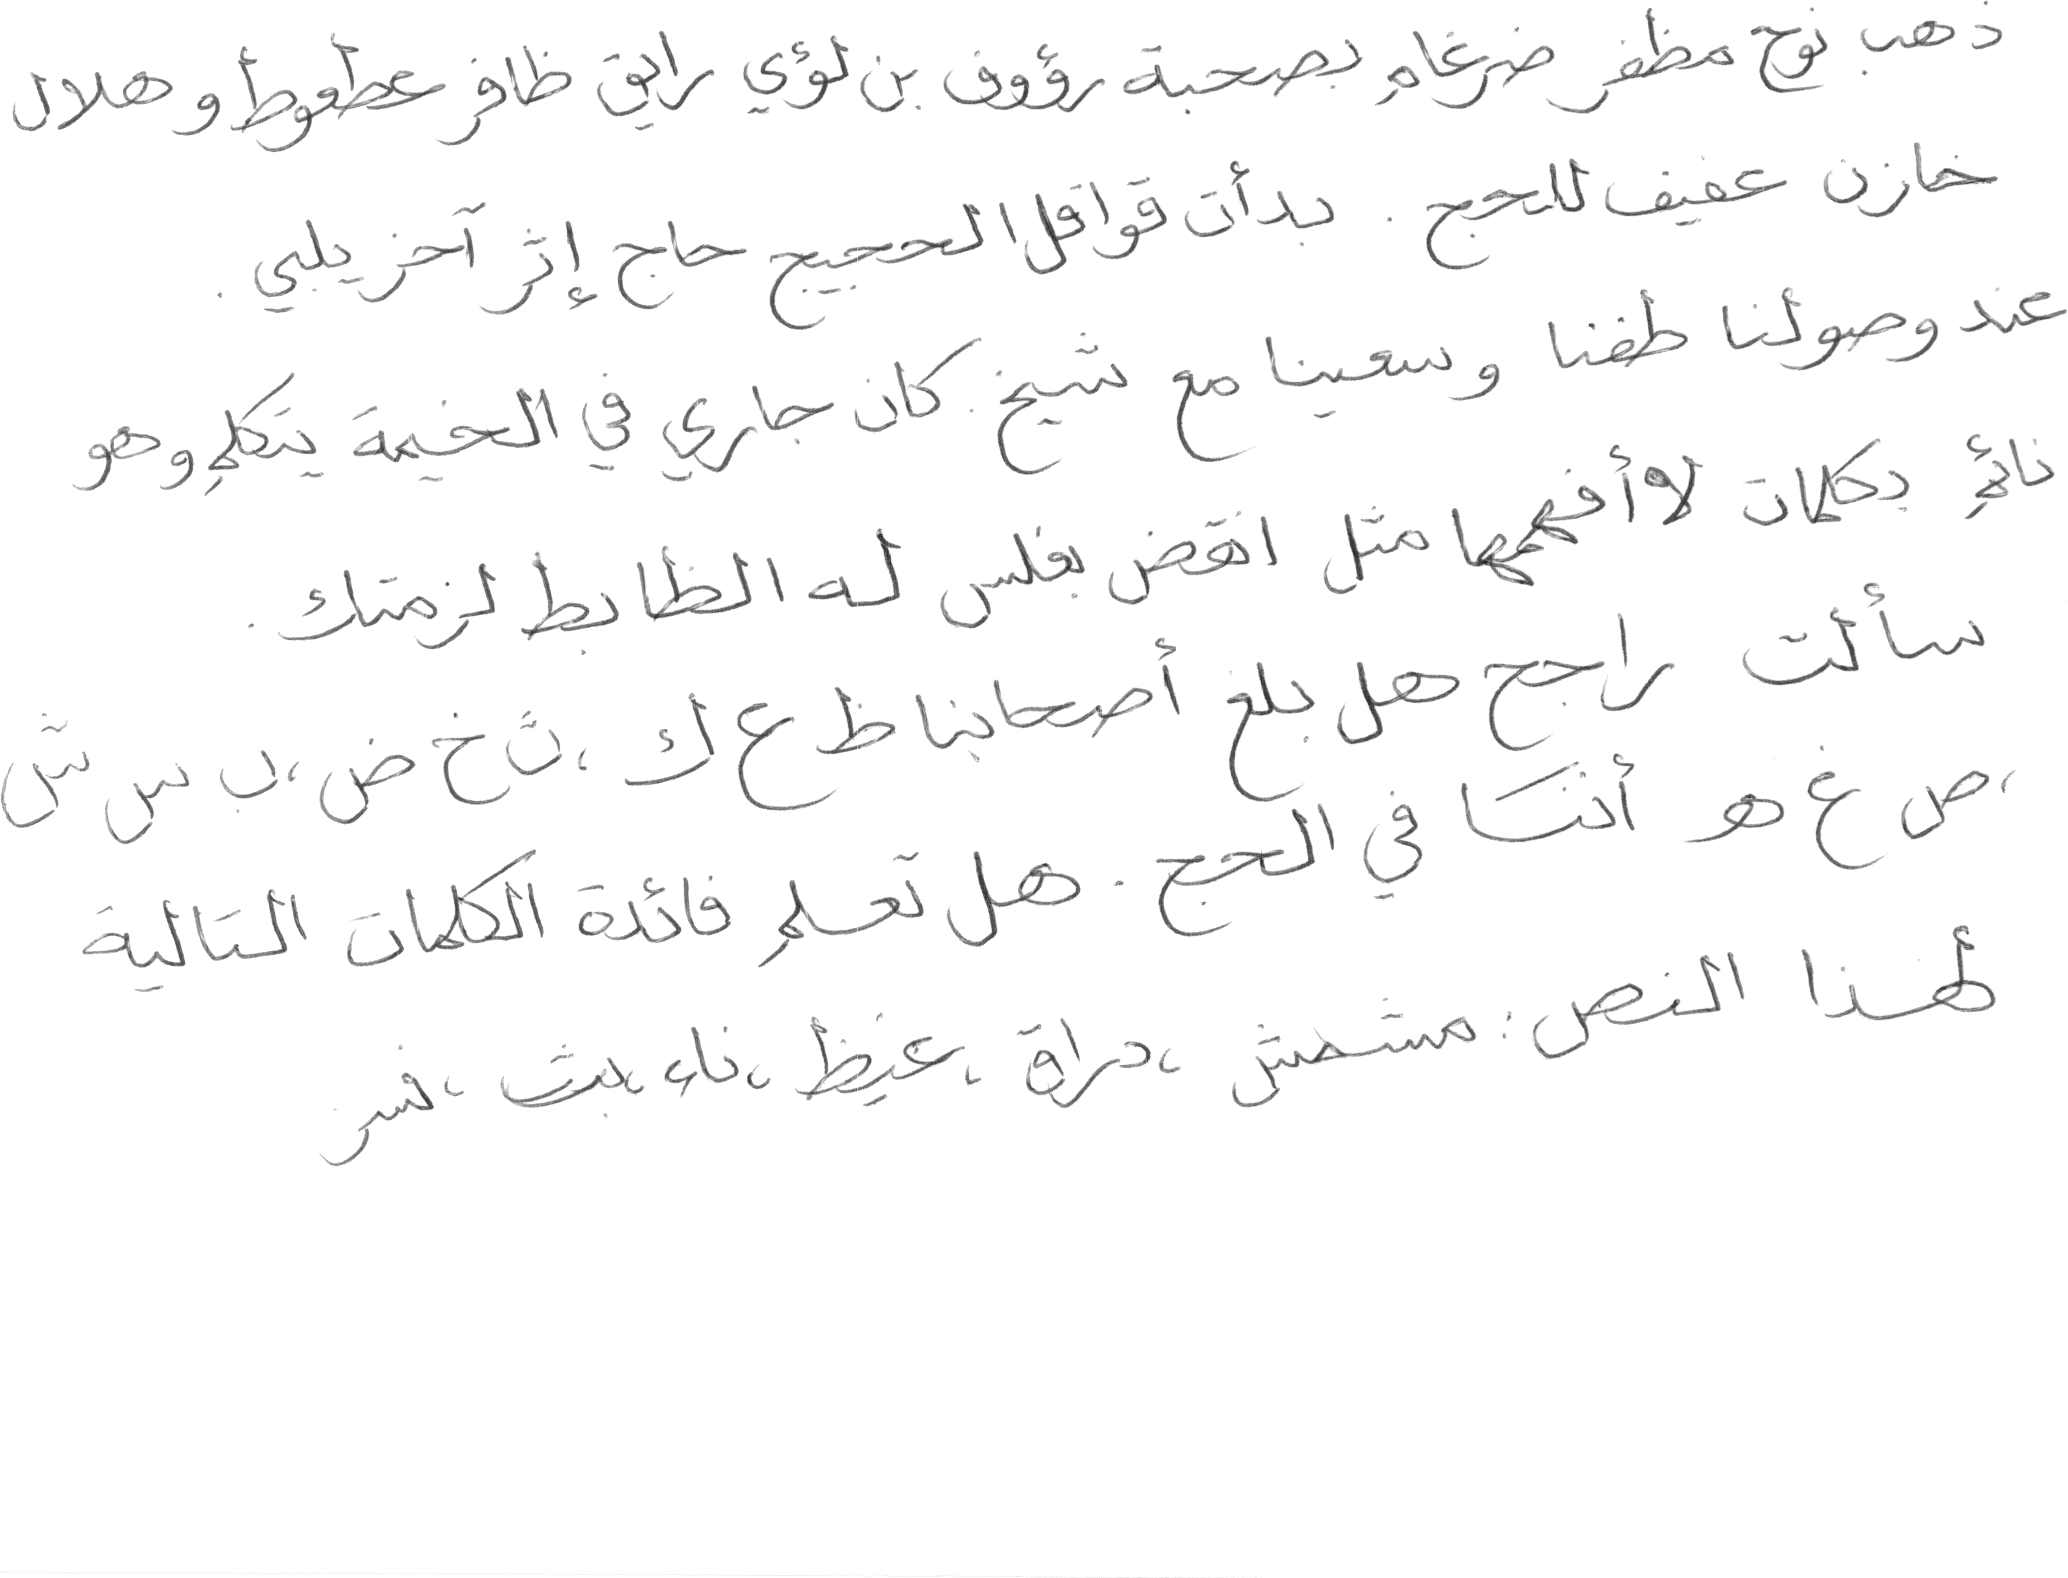 ذهب نوح مظفر ضرغام بصحبة رؤوف بن لؤي رايق ظافر عطعوط وهلال
خازن عفيف للحج . بدأت قوافل الحجيج حاج إثر آخر يلبي .
عند وصولنا طفنا وسعينا مع شيخ . كان جاري في الخيمة يتكلم وهو
نائم بكلمات لا أفهمها مثل انقض بفلس له الظابط لزمتك .
سألت راجح هل بلغ أصحابنا ظ ع ك ، ث خ ض ، ب س ش
، ص غ هـ أننا في الحج . هل تعلم فائدة الكلمات التالية
لهذا النص : مشمش ، دراق ، غيظ ، ناء ، بث ، فسر